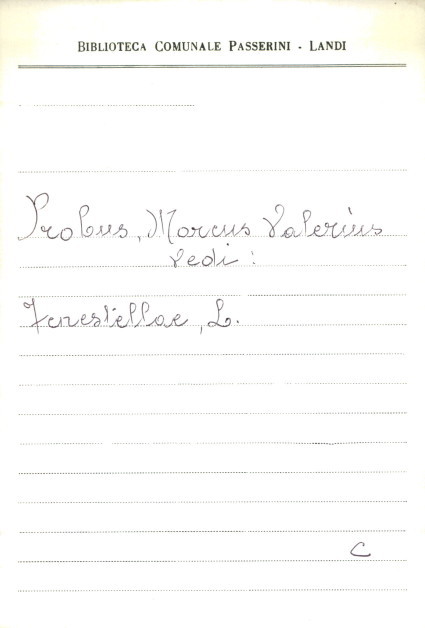 BIBLIOTECA COMUNALE PASSERINI - LANDI
Probus, Marcus Valerius
vedi:
Fenestellae, L.
C